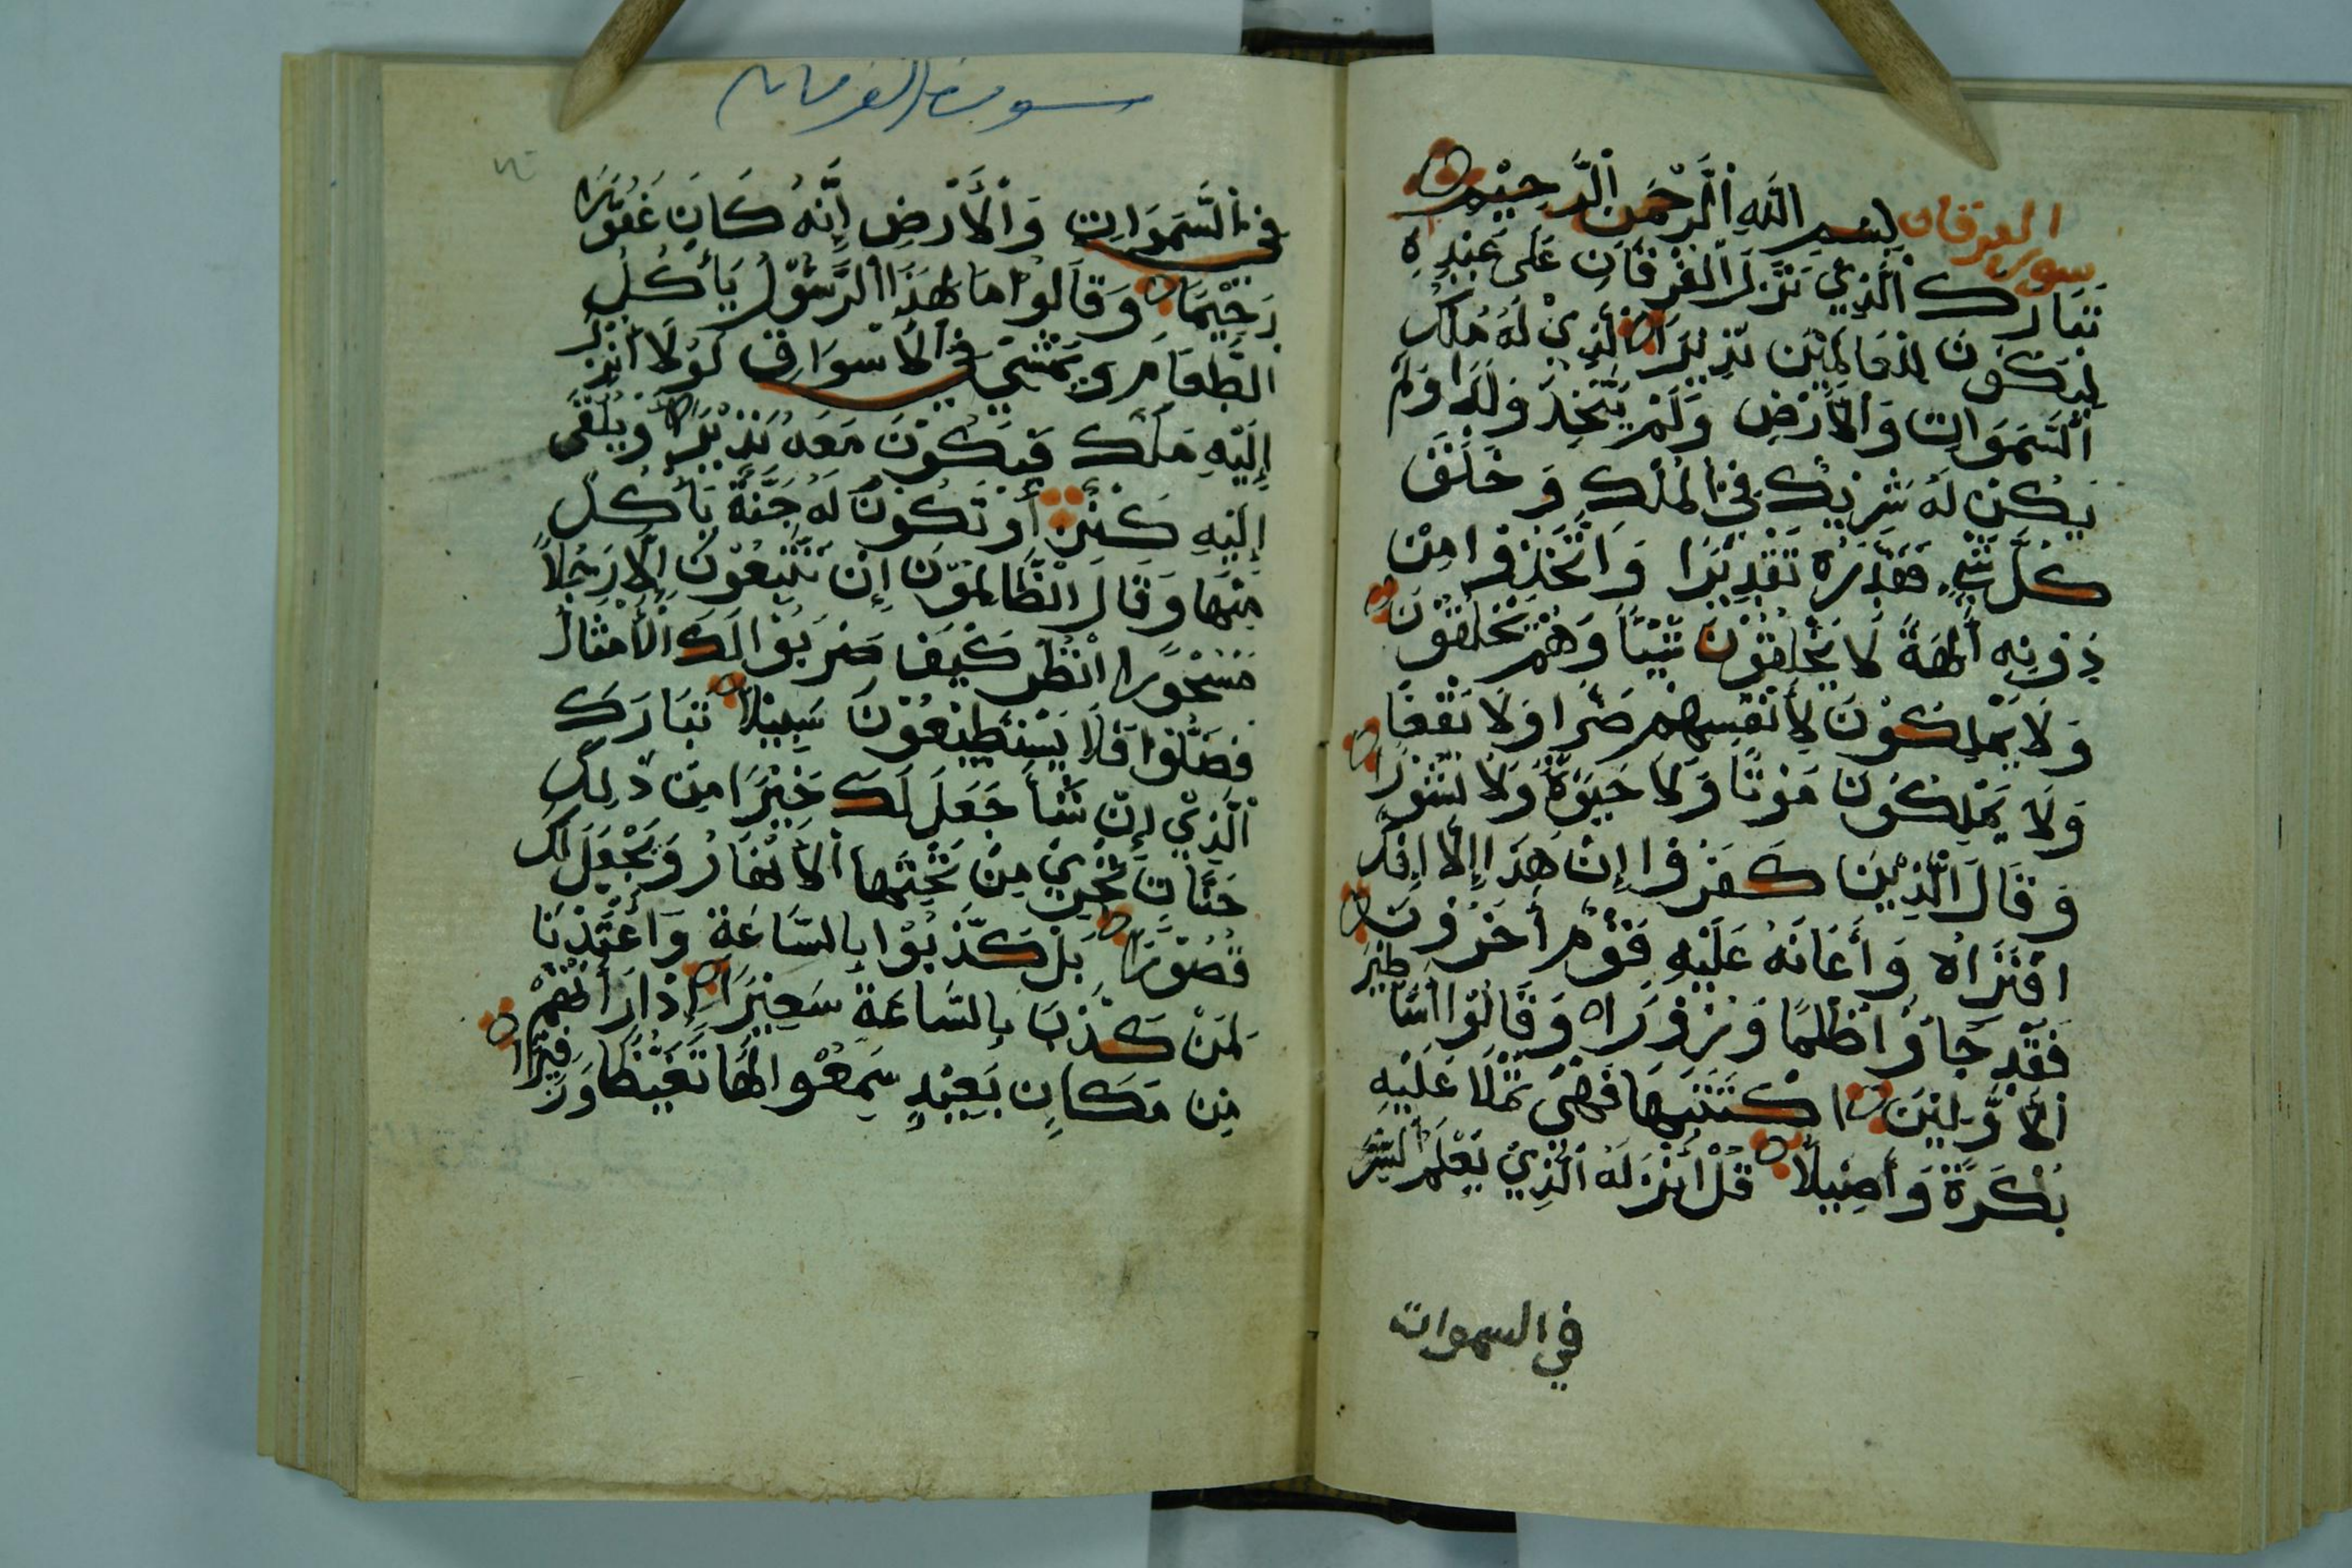 سورة الفرقان بسم الله الرحمن الرحيم
تبارك الذي نزل الفرقان على عبده
ليكون للعالمين نذيرا الذي له ملك
السموات والأرض ولم يتخذ ولدا ولم
يكن له شريك في الملك وخلق
كل شيء فقدره تقديرا واتخذوا من
دونه ألهة لا يخلقون شيئا وهم يخلقون
ولا يملكون لأنفسهم ضرا ولا نفعا
ولا يملكون موتا ولا حيوة ولا نشورا
وقال الذين كفروا إن هذا إلا إفك
افتراه وأعانه عليه قوم أخرون
فقد جاؤا ظلما وزورا وقالوا أساطير
الأولين اكتتبها فهي تملا عليه
بكرة وأصيلا قل أنزله الذي يعلم السر
في السموات
سورة الفرقان
في السموات والأرض إنه كان غفورا
رحيما وقالوا ما لهذا الرسول يأكل
الطعام ويمشي في الأسواق لولا أنزل
إليه ملك فيكون معه نذيرا أو يلقى
إليه كنز أو تكون له جنة يأكل
منها وقال الظالمون إن تتبعون إلا رجلا
مسحورا انظر كيف ضربوا لك الأمثال
فضلوا فلا يستطيعون سبيلا تبارك
الذي إن شأ جعل لك خيرا من ذلك
جنات تجري من تحتها الأنهار ويجعل لك
قصورا بل كذبوا بالساعة وأعتدنا
لمن كذب بالساعة سعيرا إذا رأتهم
من مكان بعيد سمعوا لها تغيظا وزفيرا